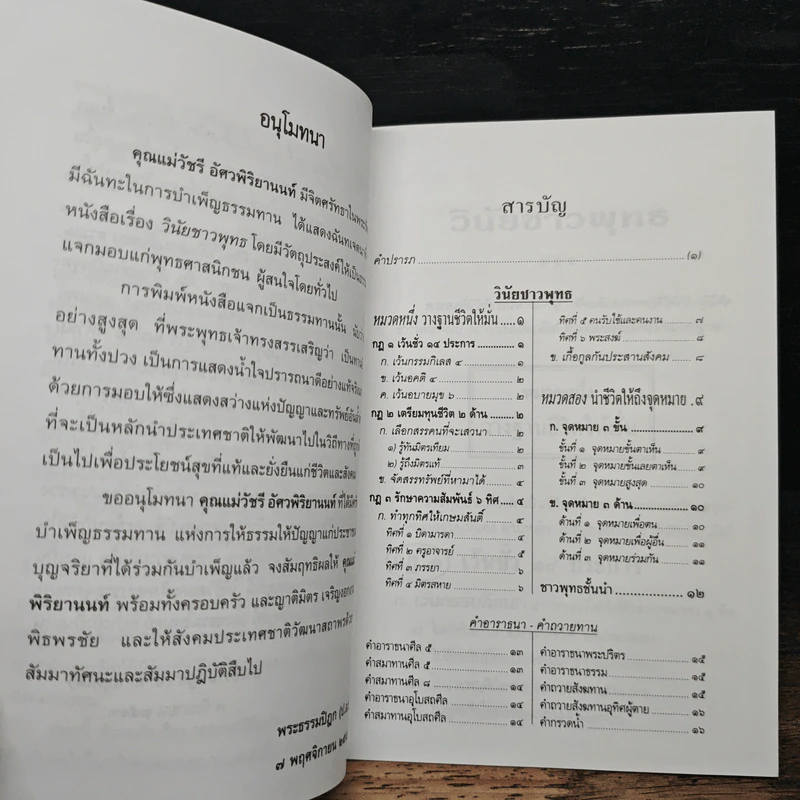 อนุโมทนา
คุณแม่วัชรี อัศวพิริยานนท์ มีจิตศรัทธาในพระ
มีฉันทะในการบำเพ็ญธรรมทาน ได้แสดงฉันทเจตนา
หนังสือเรื่อง วินัยชาวพุทธ โดยมีวัตถุประสงค์ให้เป็น
แจกมอบแก่พุทธศาสนิกชน ผู้สนใจโดยทั่วไป
การพิมพ์หนังสือแจกเป็นธรรมทานนั้น
อย่างสูงสุด ที่พระพุทธเจ้าทรงสรรเสริญว่า เป็นทาน
ทานทั้งปวง เป็นการแสดงน้ำใจปรารถนาดีอย่างแท้จริง
ด้วยการมอบให้ซึ่งแสงสว่างแห่งปัญญาและทรัพย์อัน
ที่จะเป็นหลักนำประเทศชาติให้พัฒนาไปในวิถีทางที่
เป็นไปเพื่อประโยชน์สุขที่แท้และยั่งยืนแก่ชีวิตและสังคม
ขออนุโมทนา คุณแม่วัชรี อัศวพิริยานนท์ ที่ได้มี
บำเพ็ญธรรมทาน แห่งการให้ธรรมให้ปัญญาแก่ประชาชน
บุญจริยาที่ได้ร่วมกันบำเพ็ญแล้ว จงสัมฤทธิผลให้ คุณแม่
พิริยานนท์ พร้อมทั้งครอบครัว และญาติมิตร เจริญงอกงาม
พิธพรชัย และให้สังคมประเทศชาติวัฒนาสถาพรด้วย
สัมมาทัศนะและสัมมาปฏิบัติสืบไป
พระธรรมปิฎก
๗ พฤศจิกายน
สารบัญ
คำปรารภ ..... (๑)
วินัยชาวพุทธ
หมวดหนึ่ง วางฐานชีวิตให้มั่น ..... ๑
กฎ ๑ เว้นชั่ว ๑๔ ประการ ..... ๑
ก. เว้นกรรมกิเลส ๔ ..... ๑
ข. เว้นอคติ ๔ ..... ๒
ค. เว้นอบายมุข ๖ ..... ๒
กฎ ๒ เตรียมทุนชีวิต ๒ ด้าน ..... ๒
ก. เลือกสรรคนที่จะเสวนา ..... ๒
๑) รู้ทันมิตรเทียม ..... ๒
๒) รู้ถึงมิตรแท้ ..... ๓
ข. จัดสรรทรัพย์ที่หามาได้ ..... ๔
กฎ ๓ รักษาความสัมพันธ์ ๖ ทิศ ..... ๔
ก. ทำทุกทิศให้เกษมสันติ์ ..... ๔
ทิศที่ ๑ บิดามารดา ..... ๔
ทิศที่ ๒ ครูอาจารย์ ..... ๕
ทิศที่ ๓ ภรรยา ..... ๖
ทิศที่ ๔ มิตรสหาย ..... ๖
ทิศที่ ๕ คนรับใช้และคนงาน ..... ๗
ทิศที่ ๖ พระสงฆ์ ..... ๘
ข. เกื้อกูลกันประสานสังคม ..... ๘
หมวดสอง นำชีวิตให้ถึงจุดหมาย . ๙
ก. จุดหมาย ๓ ขั้น ..... ๙
ขั้นที่ ๑ จุดหมายขั้นตาเห็น ..... ๙
ขั้นที่ ๒ จุดหมายขั้นเลยตาเห็น ..... ๙
ขั้นที่ ๓ จุดหมายสูงสุด ..... ๑๐
ข. จุดหมาย ๓ ด้าน ..... ๑๐
ด้านที่ ๑ จุดหมายเพื่อตน ..... ๑๐
ด้านที่ ๒ จุดหมายเพื่อผู้อื่น ..... ๑๑
ด้านที่ ๓ จุดหมายร่วมกัน ..... ๑๑
ชาวพุทธชั้นนำ ..... ๑๒
คำอาราธนา - คำถวายทาน
คำอาราธนาศีล ๕ ..... ๑๓
คำสมาทานศีล ๕ ..... ๑๓
คำสมาทานศีล ๘ ..... ๑๔
คำอาราธนาอุโบสถศีล ..... ๑๔
คำสมาทานอุโบสถศีล ..... ๑๔
คำอาราธนาพระปริตร ..... ๑๕
คำอาราธนาธรรม ..... ๑๕
คำถวายสังฆทาน ..... ๑๕
คำถวายสังฆทานอุทิศผู้ตาย ..... ๑๖
คำกรวดน้ำ ..... ๑๖